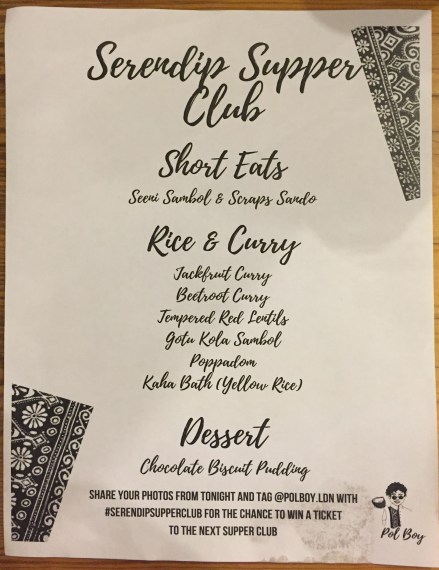 Serendip Supper
Club
Short Eats
Seeni Sambol & Scraps Sando
Rice & Curry
Jackfruit Curry
Beetroot Curry
Tempered Red Lentils
Gotu Kola Sambol
Poppadom
Kaha Bath (Yellow Rice)
Dessert
Chocolate Biscuit Pudding
SHARE YOUR PHOTOS FROM TONIGHT AND TAG @POLBOY.LDN WITH
#SERENDIPSUPPERCLUB FOR THE CHANCE TO WIN A TICKET
TO THE NEXT SUPPER CLUB
Pol Boy